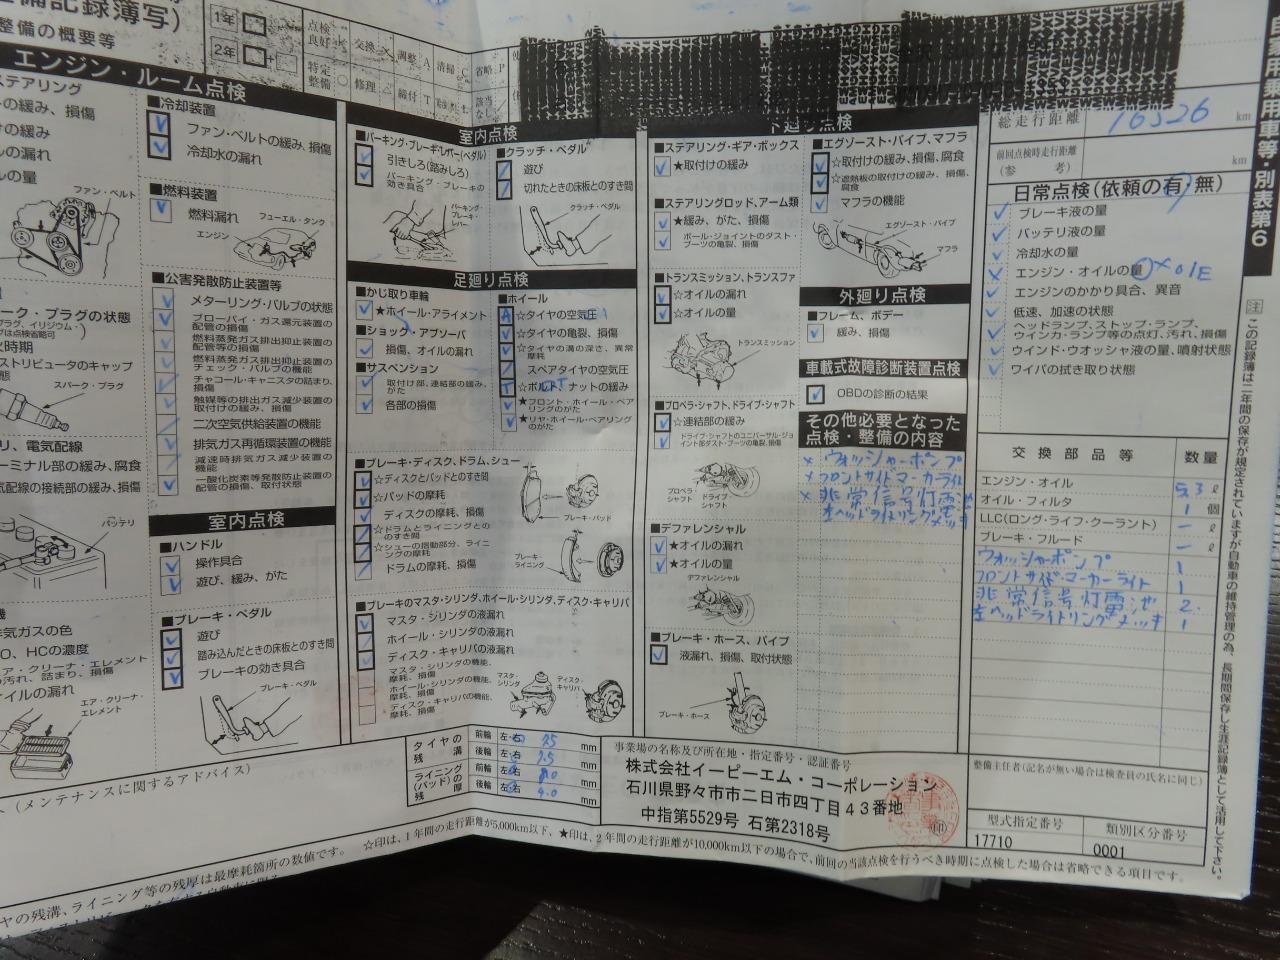 備記録簿写)
整備の概要等
1年
2年
点検良好
交換
調整 A
清掃 C
省略 P
特定整備
修理
締付 T
該当なし
エンジン・ルーム点検
ステアリング
の緩み、損傷
けの緩み
ルの漏れ
ルの量
ファン・ベルト
ーク・プラグの状態
火時期
ストリビュータのキャップ
スパーク・プラグ
リ、電気配線
ーミナル部の緩み、腐食
気配線の接続部の緩み、損傷
バッテリ
排気ガスの色
O、HCの濃度
エア・クリーナ・エレメント
の汚れ、詰まり、損傷
オイルの漏れ
エア・クリーナ・エレメント
■冷却装置
ファン・ベルトの緩み、損傷
冷却水の漏れ
■燃料装置
燃料漏れ
フューエル・タンク
エンジン
■公害発散防止装置等
メターリング・バルブの状態
ブローバイ・ガス還元装置の配管の損傷
燃料蒸発ガス排出抑止装置の配管等の損傷
燃料蒸発ガス排出抑止装置のチェック・バルブの機能
チャコール・キャニスタの詰まり、損傷
触媒等の排出ガス減少装置の取付けの緩み、損傷
二次空気供給装置の機能
排気ガス再循環装置の機能
減速時排気ガス減少装置の機能
一酸化炭素等発散防止装置の配管の損傷、取付状態
室内点検
■ハンドル
操作具合
遊び、緩み、がた
■ブレーキ・ペダル
遊び
踏み込んだときの床板とのすき間
ブレーキの効き具合
ブレーキ・ペダル
室内点検
■パーキング・ブレーキ・レバー(ペダル)
引きしろ(踏みしろ)
パーキング・ブレーキの効き具合
パーキング・ブレーキ・レバー
■クラッチ・ペダル
遊び
切れたときの床板とのすき間
クラッチ・ペダル
足廻り点検
■かじ取り車輪
★ホイール・アライメント
■ショック・アブソーバ
損傷、オイルの漏れ
■サスペンション
取付け部、連結部の緩み、がた
各部の損傷
■ホイール
☆タイヤの空気圧
☆タイヤの亀裂、損傷
☆タイヤの溝の深さ、異常摩耗
スペアタイヤの空気圧
☆ボルト、ナットの緩み
★フロント・ホイール・ベアリングのがた
★リヤ・ホイール・ベアリングのがた
■ブレーキ・ディスク、ドラム、シュー
☆ディスクとパッドとのすき間
☆パッドの摩耗
ディスクの摩耗、損傷
☆ドラムとライニングとのすき間
☆シューの摺動部分、ライニングの摩耗
ドラムの摩耗、損傷
ブレーキ・パッド
ブレーキ・ライニング
■ブレーキのマスタ・シリンダ、ホイール・シリンダ、ディスク・キャリパ
マスタ・シリンダの液漏れ
ホイール・シリンダの液漏れ
ディスク・キャリパの液漏れ
マスタ・シリンダの機能、摩耗、損傷
ホイール・シリンダの機能、摩耗、損傷
ディスク・キャリパの機能、摩耗、損傷
マスタ・シリンダ
ディスク・キャリパ
下廻り点検
■ステアリング・ギア・ボックス
★取付けの緩み
■ステアリングロッド、アーム類
★緩み、がた、損傷
ボール・ジョイントのダスト・ブーツの亀裂、損傷
■トランスミッション、トランスファ
☆オイルの漏れ
☆オイルの量
トランスミッション
■プロペラ・シャフト、ドライブ・シャフト
☆連結部の緩み
ドライブ・シャフトのユニバーサル・ジョイント部ダスト・ブーツの亀裂、損傷
プロペラシャフト
ドライブシャフト
■デファレンシャル
★オイルの漏れ
★オイルの量
デファレンシャル
■ブレーキ・ホース、パイプ
液漏れ、損傷、取付状態
ブレーキ・ホース
■エグゾースト・パイプ、マフラ
☆取付けの緩み、損傷、腐食
☆遮熱板の取付けの緩み、損傷、腐食
マフラの機能
エグゾースト・パイプ
マフラ
外廻り点検
■フレーム、ボデー
緩み、損傷
車載式故障診断装置点検
OBDの診断の結果
その他必要となった点検・整備の内容
× ウォッシャーポンプ
× フロントサイドマーカーライト
× 非常信号灯電池
左ヘッドライトリングメッキ
総走行距離
16526
km
前回点検時走行距離
(参 考)
km
日常点検(依頼の有・無)
ブレーキ液の量
バッテリ液の量
冷却水の量
エンジン・オイルの量
× O/E
エンジンのかかり具合、異音
低速、加速の状態
ヘッドランプ、ストップ・ランプ、ウインカ・ランプ等の点灯、汚れ、損傷
ウインド・ウオッシャ液の量、噴射状態
ワイパの拭き取り状態
交換部品等
数量
エンジン・オイル
5.3 ℓ
オイル・フィルタ
1 個
LLC(ロング・ライフ・クーラント)
ー ℓ
ブレーキ・フルード
ー ℓ
ウォッシャーポンプ 1
フロントサイドマーカーライト 1
非常信号灯電池 2
左ヘッドライトリングメッキ 1
整備主任者(記名が無い場合は検査員の氏名に同じ)
型式指定番号
17710
類別区分番号
0001
タイヤの残溝
前輪 左・右 7.5 mm
後輪 左・右 7.5 mm
ライニング(パッド)の残厚
前輪 左・右 8.0 mm
後輪 左・右 9.0 mm
事業場の名称及び所在地・指定番号・認証番号
株式会社イーピーエム・コーポレーション
石川県野々市市二日市四丁目43番地
中指第5529号 石第2318号
㊞
(メンテナンスに関するアドバイス)
☆印は、1年間の走行距離が5,000km以下、★印は、2年間の走行距離が10,000km以下の場合で、前回の当該点検を行うべき時期に点検した場合は省略できる項目です。
ヤの残溝、ライニング等の残厚は最摩耗箇所の数値です。
自家用乗用車等・別表第6
注 この記録簿は二年間の保存が規定されていますが自動車の維持管理の為、長期間保存し生涯記録簿として活用して下さい。